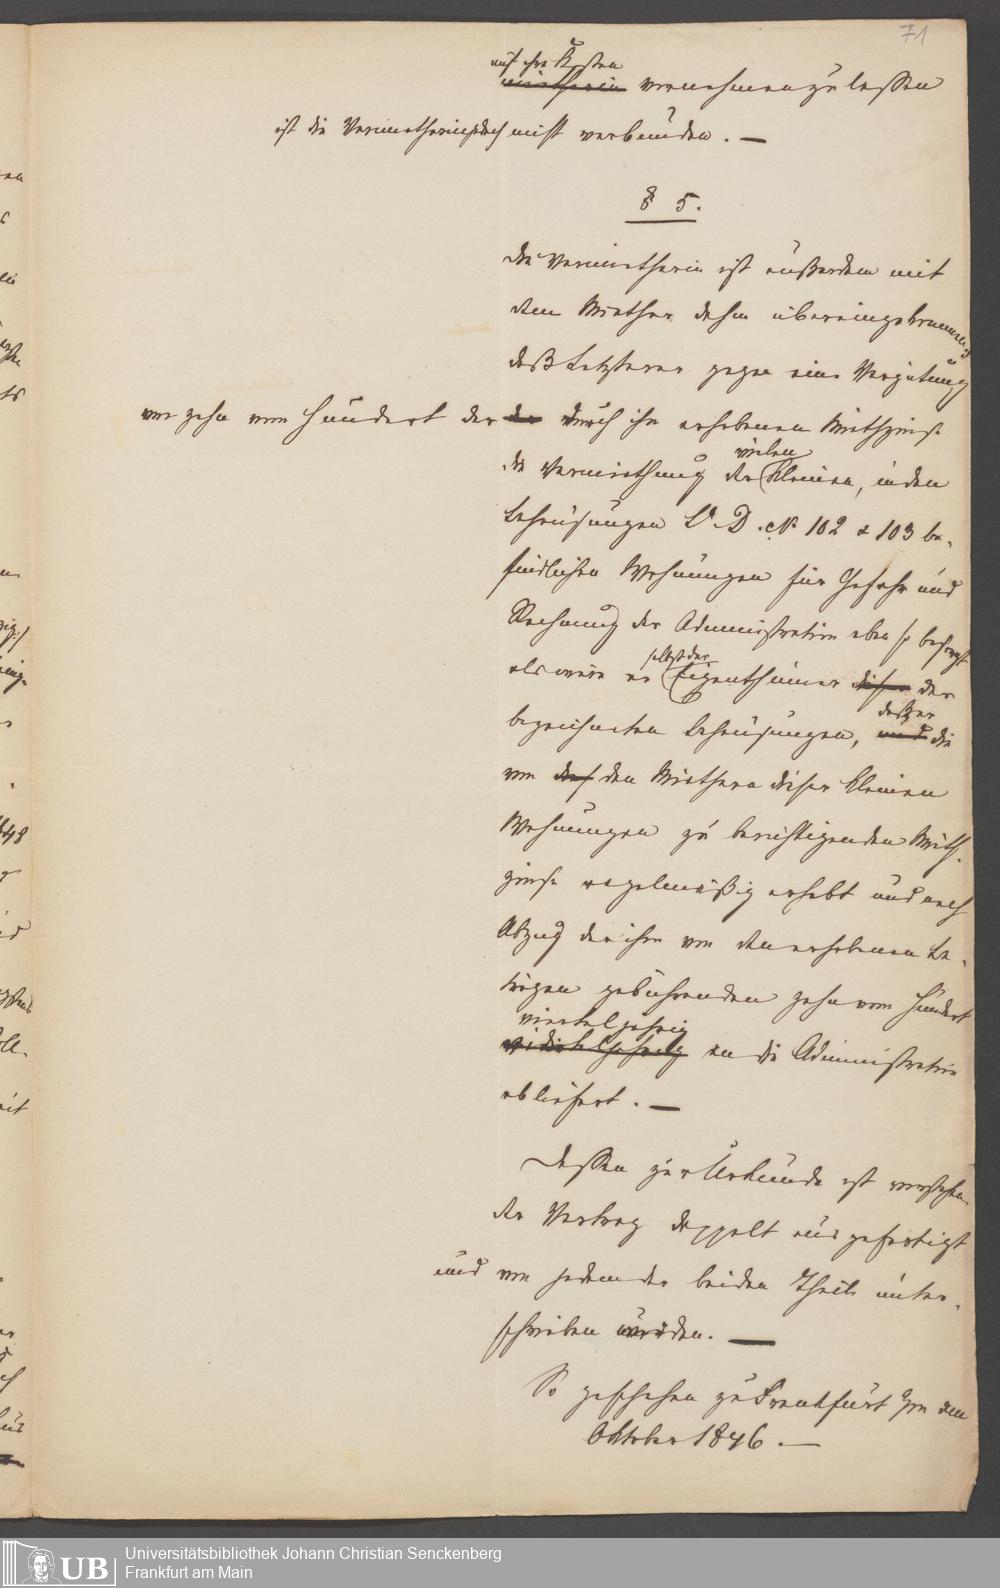 71
auf ihre Kosten
vornehmen zu lassen
ist die Vermietherin jedoch nicht verbunden. —
§ 5.
Die Vermietherin ist außerdem mit
dem Miether dahin übereingekommen,
daß Letzterer gegen eine Vergütung
von zehn vom Hundert der der durch ihn erhobenen Miethzinse
die Vermiethung der vielen kleinen, in den
Behausungen Lr. D. No. 102 & 103 be-
findlichen Wohnungen für Gefahr und
Rechnung der Administration eben so besorgt
als wäre er selbst der Eigenthümer dieser der
bezeichneten Behausungen, daß er und die
von den Miethern dieser kleinen
Wohnungen zu berichtigenden Mieth-
zinse regelmäßig erhebt und nach
Abzug der ihm von den erhobenen Be-
trägen gebührenden zehn vom Hundert
vierteljährig
vierteljährig an die Administration
abliefert. —
Dessen zur Urkunde ist vorstehen-
der Vertrag doppelt ausgefertigt
und von jedem der beiden Theile unter-
schrieben worden. —
So geschehen zu Frankfurt a/m den
Oktober 1846. —
Universitätsbibliothek Johann Christian Senckenberg
Frankfurt am Main
UB